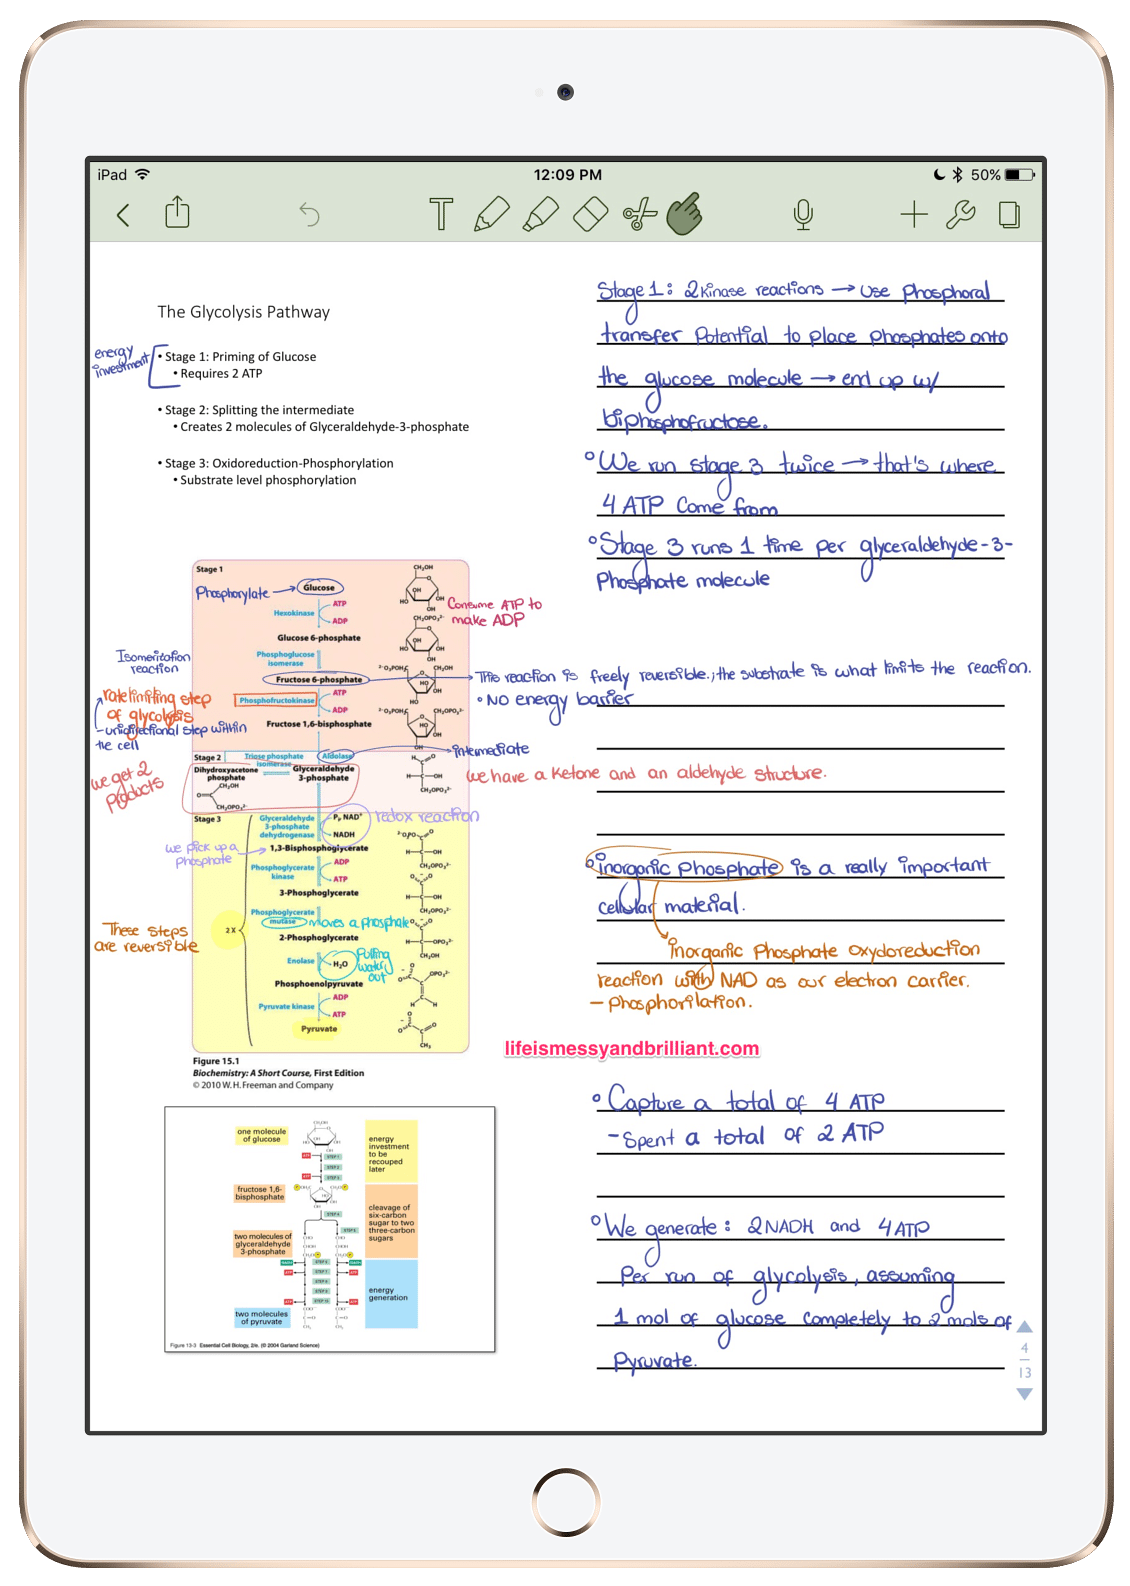 iPad
12:09 PM
50%
T
The Glycolysis Pathway
energy
investment
• Stage 1: Priming of Glucose
• Requires 2 ATP
• Stage 2: Splitting the intermediate
• Creates 2 molecules of Glyceraldehyde-3-phosphate
• Stage 3: Oxidoreduction-Phosphorylation
• Substrate level phosphorylation
Stage 1: 2 kinase reactions → use Phosphoral
transfer Potential to place phosphates onto
the glucose molecule → end up w/
biphosphofructose.
° We run stage 3 twice → that's where
4 ATP come from
° Stage 3 runs 1 time per glyceraldehyde-3-
Phosphate molecule
Stage 1
Phosphorylate → Glucose
Hexokinase
ATP
ADP
Consume ATP to
make ADP
Glucose 6-phosphate
Isomeritation
reaction
Phosphoglucose
isomerase
Fructose 6-phosphate
This reaction is freely reversible., the substrate is what limits the reaction.
° No energy barrier
rate limiting step
of glycolysis
- unidirectional step within
the cell
Phosphofructokinase
ATP
ADP
Fructose 1,6-bisphosphate
Stage 2
Triose phosphate
isomerase
Aldolase
intermediate
we get 2
Products
Dihydroxyacetone
phosphate
Glyceraldehyde
3-phosphate
CH₂OH
CH₂OPO₃²⁻
we have a Ketone and an aldehyde structure.
Stage 3
Glyceraldehyde
3-phosphate
dehydrogenase
Pᵢ, NAD⁺
NADH
redox reaction
we pick up a
Phosphate
1,3-Bisphosphoglycerate
Phosphoglycerate
kinase
ADP
ATP
3-Phosphoglycerate
These steps
are reversible
2 X
Phosphoglycerate
mutase
moves a phosphate
2-Phosphoglycerate
Enolase
H₂O
Pulling
water
out
Phosphoenolpyruvate
Pyruvate kinase
ADP
ATP
Pyruvate
° inorganic Phosphate is a really important
cellular material.
inorganic Phosphate oxydoreduction
reaction with NAD as our electron carrier.
- Phosphorilation.
lifeismessyandbrilliant.com
Figure 15.1
Biochemistry: A Short Course, First Edition
© 2010 W. H. Freeman and Company
° Capture a total of 4 ATP
- Spent a total of 2 ATP
° We generate: 2 NADH and 4 ATP
Per run of glycolysis, assuming
1 mol of glucose completely to 2 mols of
Pyruvate.
one molecule
of glucose
energy
investment
to be
recouped
later
fructose 1,6-
bisphosphate
cleavage of
six-carbon
sugar to two
three-carbon
sugars
two molecules of
glyceraldehyde
3-phosphate
energy
generation
two molecules
of pyruvate
Figure 13-3 Essential Cell Biology, 2/e. (© 2004 Garland Science)
4
13